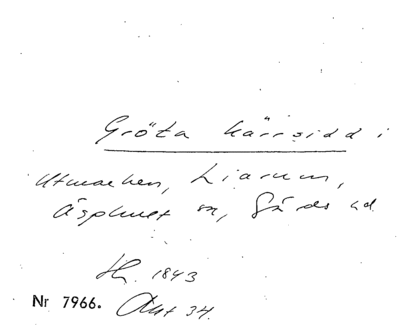 Gröta kärrsidd i
Utmarken, Liarum,
Äsphult sn, Gärds hd
1843
Nr 7966. Akt 34.